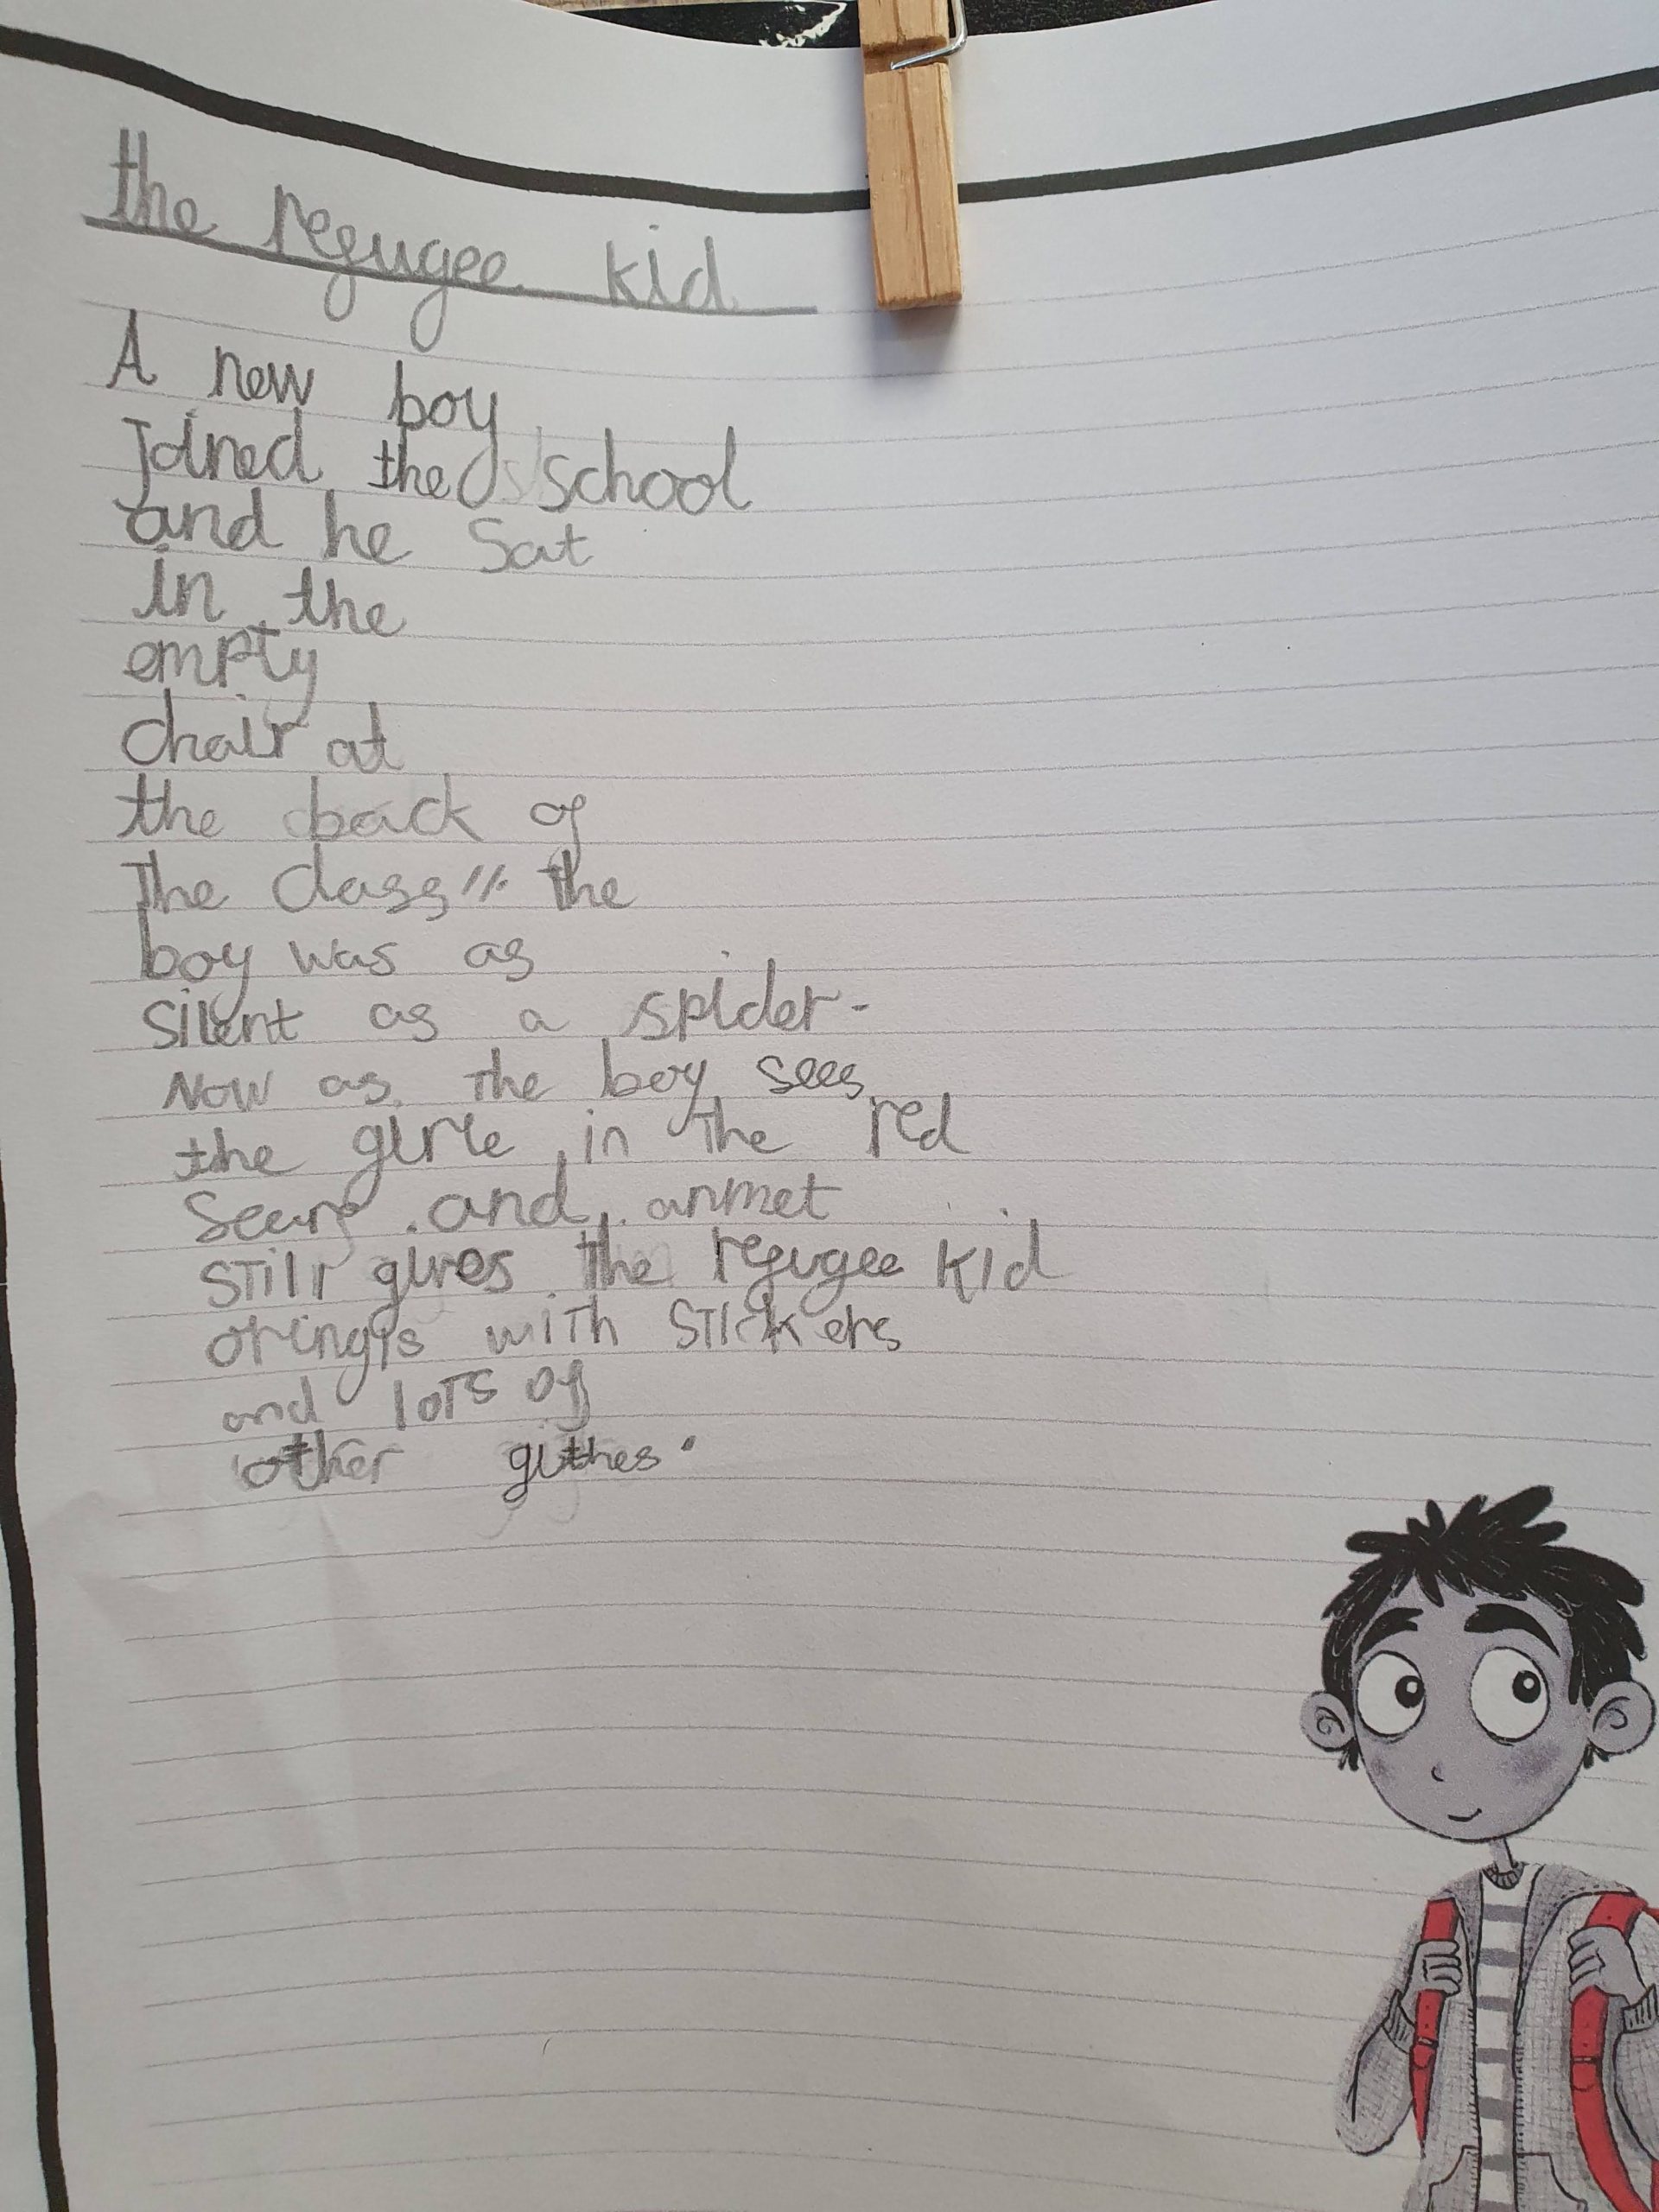 the refugee kid
A new boy
Joined the school
and he Sat
in the
empty
chair at
the back of
The class // the
boy was as
silent as a spider-
Now as the boy sees
the girle in the red
and anmet
still gives the refugee kid
with stickers
and lots of
other